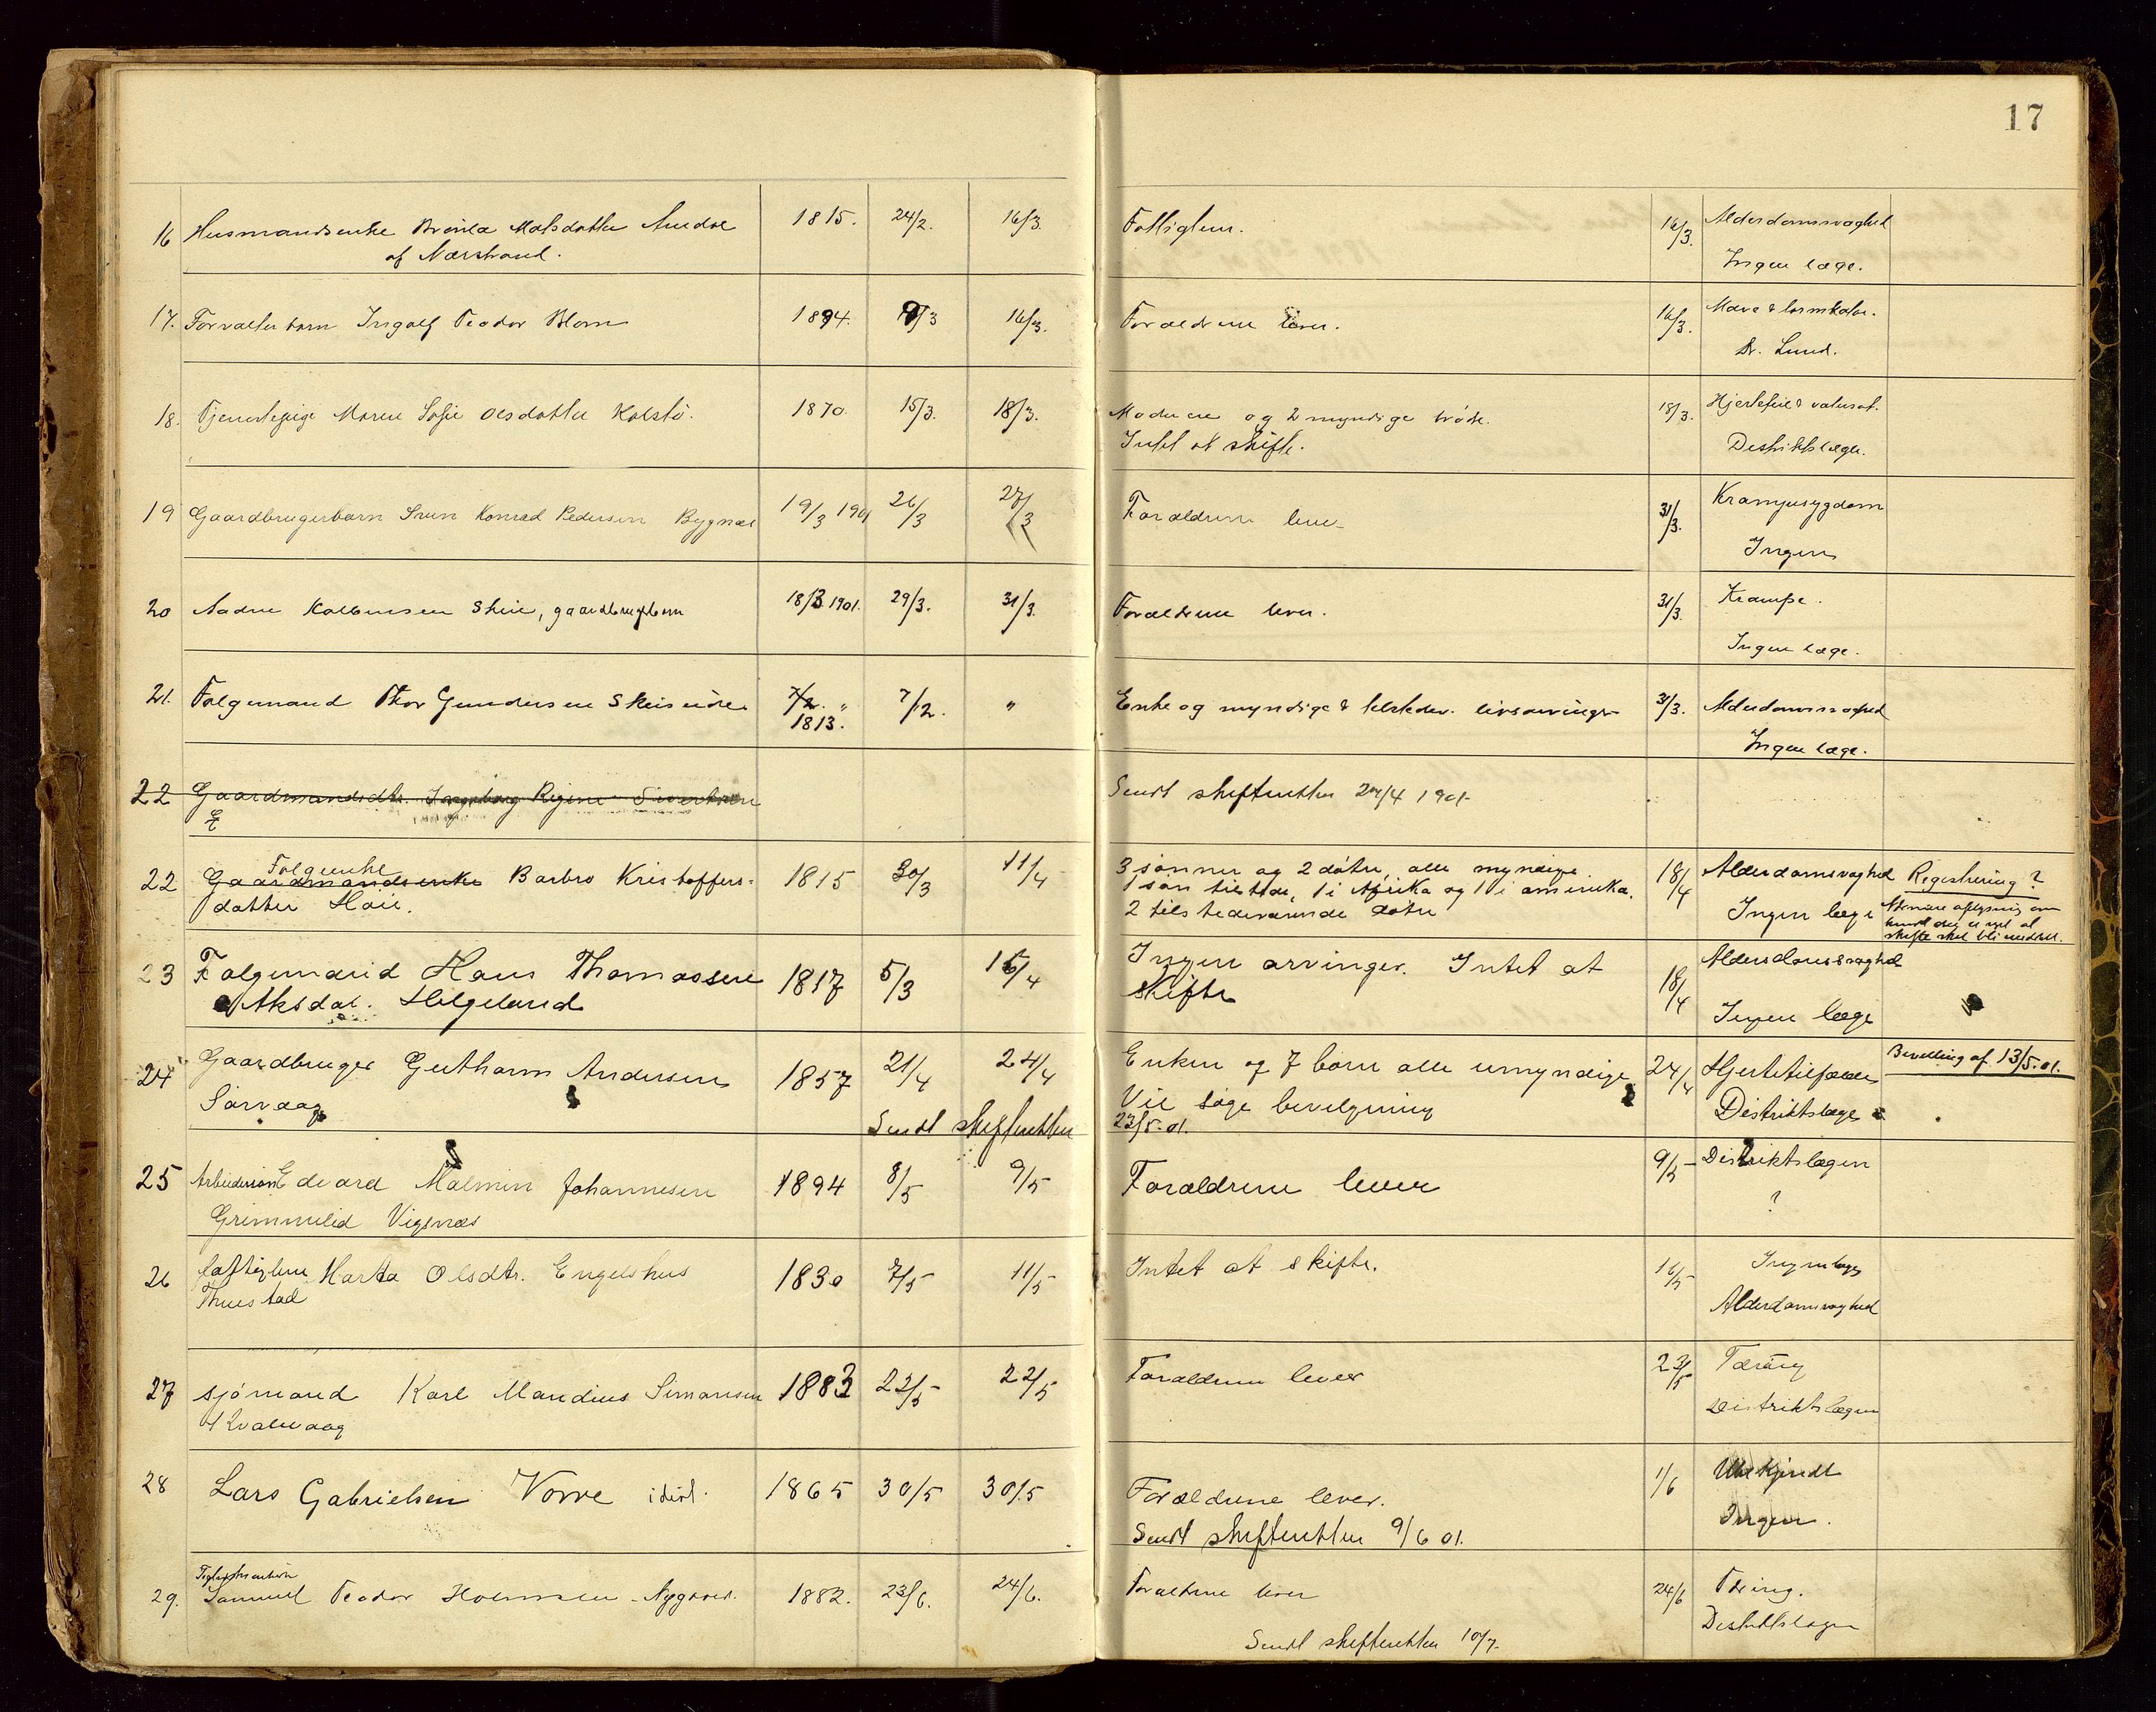 17
16 Husmandsenke Malsdatter 1815. 24/2. 16/3. Fattiglem. 16/3. Alderdomsvaghed
af Nærstrand. Ingen læge.
17. Forvalterbarn Ingolf Teodor Blom 1894. /3 16/3. Forældrene lever. 16/3. Mave &
Dr. Lund.
18. Tjenestepige Maren Sofie Olsdatter Kolstø. 1870. 15/3. 18/3. Moderen og 2 myndige brødre. 18/3. Hjertefeil & vatersot.
Intet at skifte. Distriktslægen.
19 Gaardbrugerbarn Sven Konrad Pedersen Bygnæs 19/3 1901 26/3 27/3 Forældrene lever 31/3. Krampesygdom
Ingen
20 Aadne Kolbensen Skeie, gaardbrugerbarn 18/3 1901. 29/3. 31/3. Forældrene lever. 31/3. Krampe.
Ingen læge.
21. Folgemand Thor Gundersen 7/2. " 7/2. " Enke og myndige & tilstedev. livsarvinger 31/3. Alderdomsvaghed
1813. Ingen læge.
22 Gaardmandsdtr. Ingeborg Regine Sivertsen Sendt skifteretten 29/4 1901.
22 Folgeenke
Gaardmandsenke Barbro Kristoffers- 1815 30/3 11/4 3 sønner og 2 døtre, alle myndige. 18/4 Alderdomsvaghed Registrering?
datter Høie. 1 søn tilstede, 1 i Afrika og 1 i amerika. Ingen læge
2 tilstedeværende døtre Nærmere oplysning om
skifte skal bli
23 Folgemand Hans Thomassen 1817 5/3 15/4 Ingen arvinger. Intet at 18/4 Alderdomsvaghed
Aksdal. Helgeland skifte Ingen læge
24 Gaardbruger Guthorm Andersen 1857 21/4 24/4 Enken og 7 børn alle umyndige 24/4 Hjertetilfælde Bevilling af 13/5.01.
Sørvaag Vil søge bevilgning Distriktslægen
Sendt skifteretten 23/5.01.
25 Arbeidersøn Edvard Malmin Johannesen 1894 8/5 9/5 Forældrene lever 9/5 Distriktslægen
Grimmelid Vigsnæs ?
26 Fattiglem Marta Olsdtr. Engelshus 1830 7/5 11/5 Intet at skifte. 16/5 Ingen læge
Thuestad Alderdomsvaghed
27 Sjømand Karl Maudius Simonsen 1883 22/5 22/5 Forældrene lever 23/5 Tæring
Kvalavaag Distriktslægen
28 Lars Gabrielsen Vorre idiot. 1865 30/5 30/5 Forældrene lever. 1/6 Ubekjendt
Sendt skifteretten 9/6 01. Ingen.
29. Samuel Teodor Nygaard. 1882. 23/6. 24/6. Forældrene lever 24/6 Tæring.
Sendt skifteretten 10/7. Distriktslægen